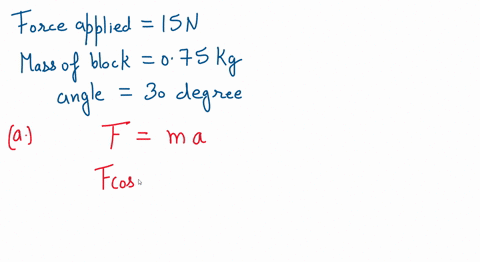 Force applied = 15N
Mass of block = 0.75 Kg
angle = 30 degree
(a.) F = ma
Fcos